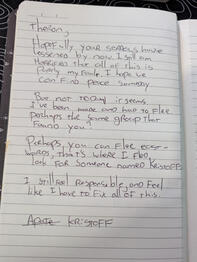 Therion,
Hopefully your sorrows have
lessened by now. I still am
that all of this is
my fault. I hope we
can find peace someday.
But not today it seems.
I've been made and had to flee
perhaps the same group that
found you?
Perhaps, you can flee east-
wards, that's where I fled,
look for someone named Kristoff.
I still feel responsible, and feel
like I have to fix all of this.
KRISTOFF